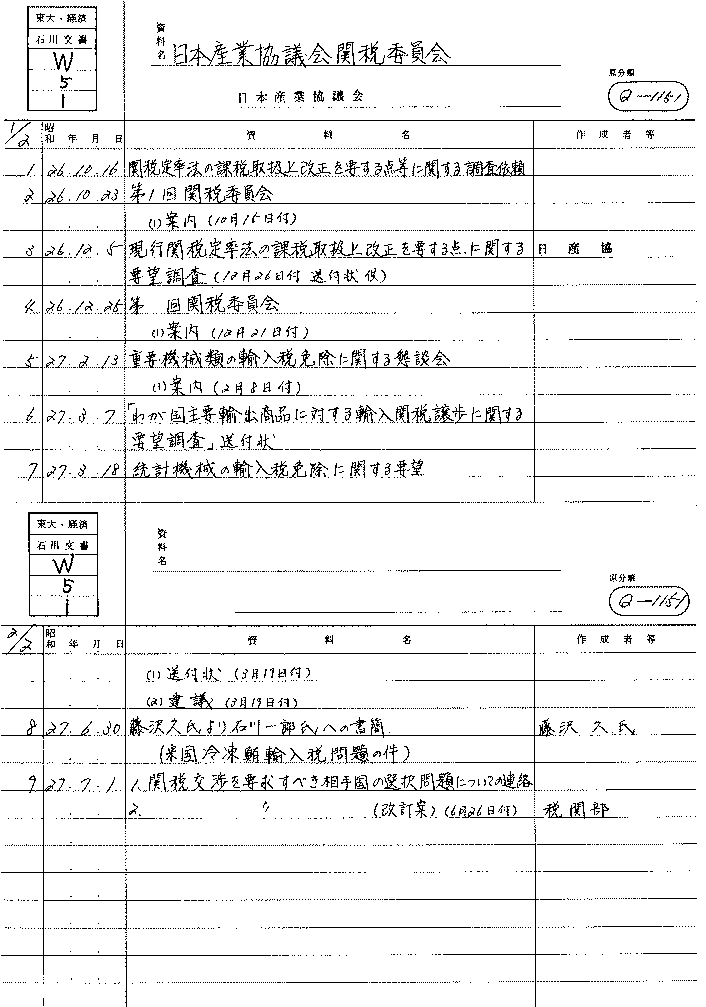 東大・経済
石川文書
W
5
1
資料名 日本産業協議会関税委員会
日本産業協議会
原分類
Q-1151
1/2 昭和 年 月 日 資料名 作成者等
1 26.10.16 関税定率法の課税取扱上改正を要する点等に関する調査依頼
2 26.10.23 第1回関税委員会
(1)案内(10月15日付)
3 26.12.5 現行関税定率法の課税取扱上改正を要する点に関する 日産協
要望調査(12月26日付 送付状 仮)
4 26.12.25 第 回関税委員会
(1)案内(12月21日付)
5 27.2.13 重要機械類の輸入税免除に関する懇談会
(1)案内(2月8日付)
6 27.3.7 「わが国主要輸出商品に対する輸入関税譲歩に関する
要望調査」送付状
7 27.3.18 統計機械の輸入税免除に関する要望
東大・経済
石川文書
W
5
1
資料名
原分類
Q-1151
2/2 昭和 年 月 日 資料名 作成者等
(1)送付状(3月19日付)
(2)建議(3月19日付)
8 27.6.30 藤沢久氏より石川一郎氏への書簡 藤沢久氏
(米国冷凍鮪輸入税問題の件)
9 27.7.1 1.関税交渉を要求すべき相手国の選択問題についての連絡
2. 〃 (改訂案)(6月26日付) 税関部